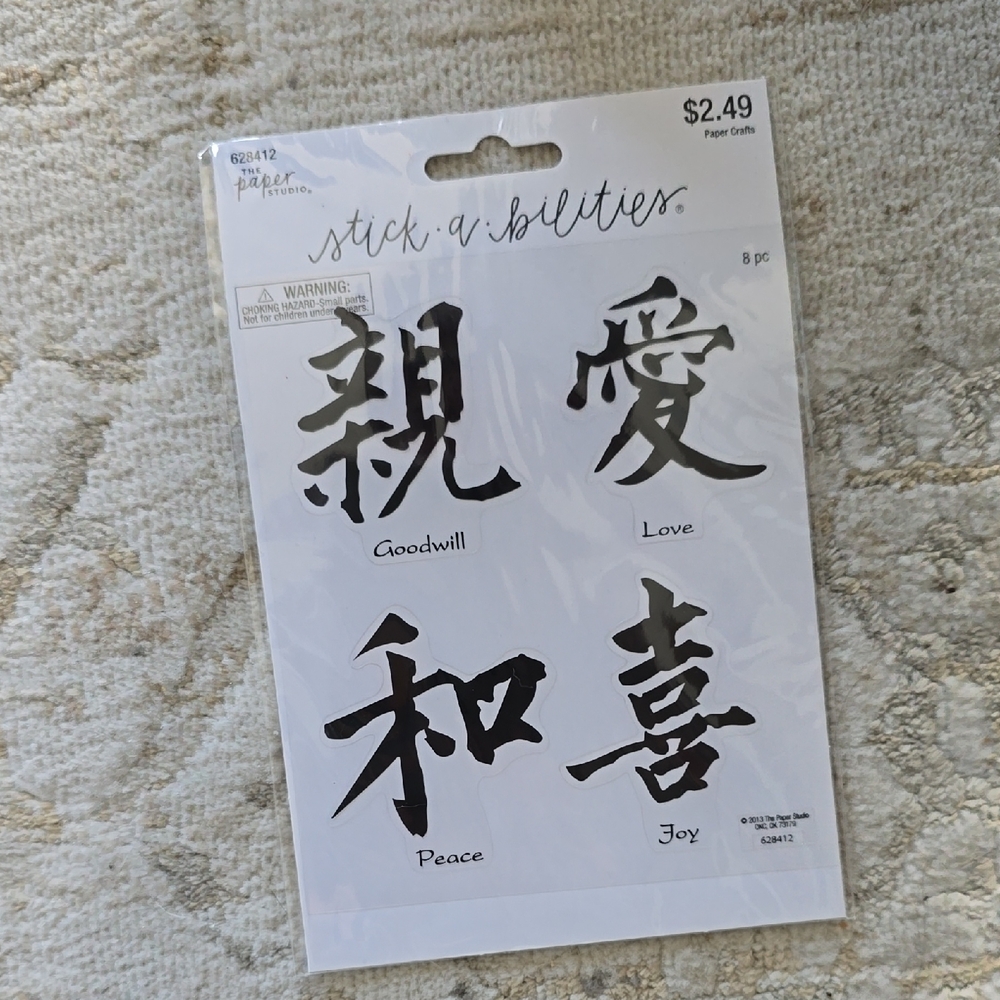 $2.49
Paper Crafts
628412
THE
paper
STUDIO®
stick·a·bilities®
8 pc
WARNING:
CHOKING HAZARD-Small parts.
Not for children under years.
親
愛
Goodwill
Love
和
喜
Peace
Joy
© 2013 The Paper Studio
OKC, OK 73179
628412